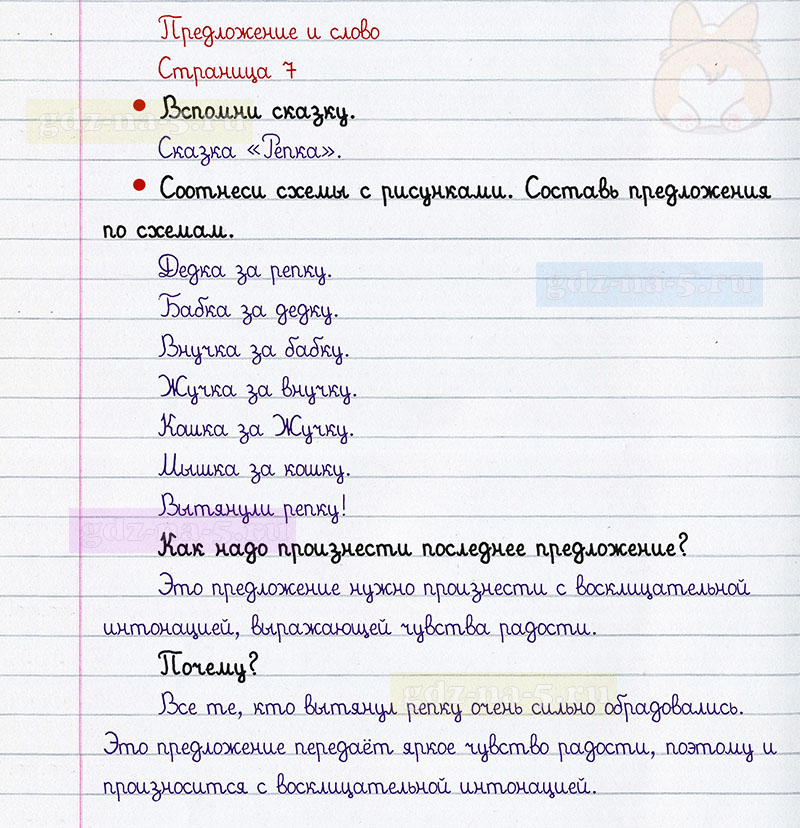 Предложение и слово
Страница 7
• Вспомни сказку.
gdz-na-5.ru
Сказка «Репка».
• Соотнеси схемы с рисунками. Составь предложения
по схемам.
Дедка за репку.
gdz-na-5.ru
Бабка за дедку.
Внучка за бабку.
Жучка за внучку.
Кошка за Жучку.
Мышка за кошку.
Вытянули репку!
gdz-na-5.ru
Как надо произнести последнее предложение?
Это предложение нужно произнести с восклицательной
интонацией, выражающей чувства радости.
Почему?
gdz-na-5.ru
Все те, кто вытянул репку очень сильно обрадовались.
Это предложение передаёт яркое чувство радости, поэтому и
произносится с восклицательной интонацией.